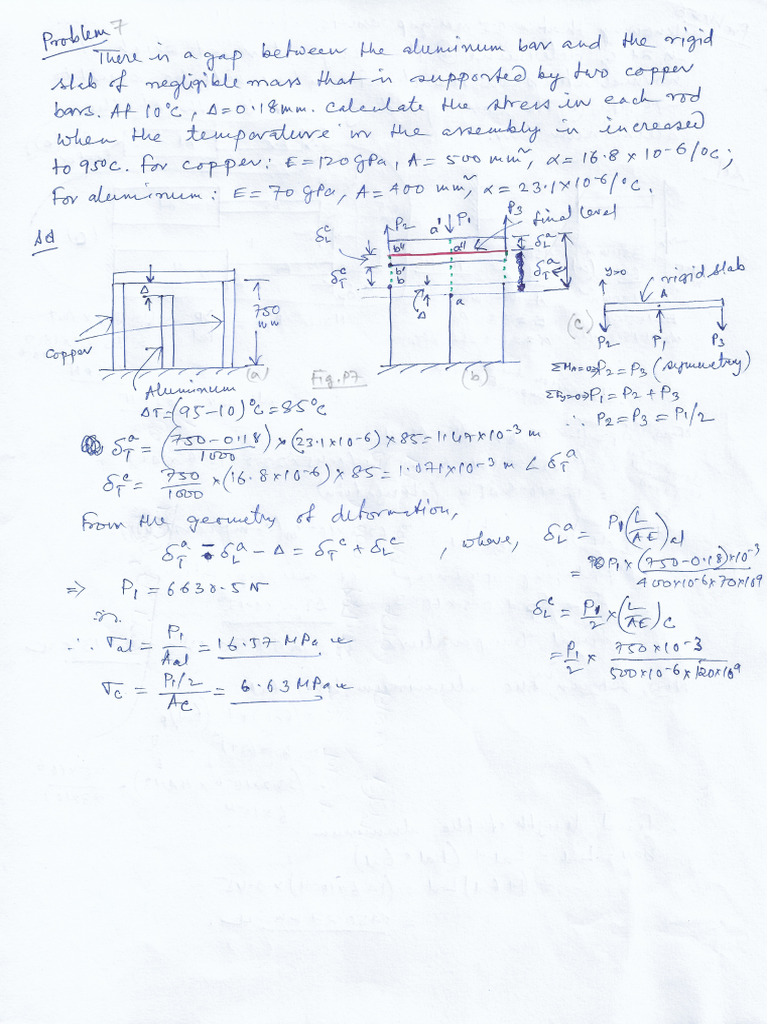 Problem 7
There is a gap between the aluminum bar and the rigid
slab of negligible mass that is supported by two copper
bars. At 10°C, Δ=0.18mm. Calculate the stress in each rod
when the temperature in the assembly is increased
to 95°C. For copper: E=120GPa, A=500 mm², α=16.8×10-6/°C;
For aluminum: E=70 GPa, A=400 mm², α=23.1×10-6/°C.
Sol
Δ
750
mm
Copper
Aluminum
(a)
Fig. P7
δLc
δTc
P2
a' P1
P3
final level
b"
a"
b'
b
a
Δ
δLa
δTa
(b)
(c)
y>0
rigid slab
A
P2 P1 P3
ΣMA=0⇒P2=P3 (symmetry)
ΣFy=0⇒P1=P2+P3
∴ P2=P3=P1/2
ΔT=(95-10)°C=85°C
δTa=(750-0.18/1000)×(23.1×10-6)×85=1.47×10-3 m
δTc=750/1000×(16.8×10-6)×85=1.071×10-3 m < δTa
From the geometry of deformation,
δTa - δLa - Δ = δTc + δLc , where, δLa = P1(L/AE)al
= P1×(750-0.18)×10-3/400×10-6×70×109
⇒ P1=6630.5N
δLc = P1/2×(L/AE)C
= P1/2 × 750×10-3/500×10-6×120×109
∴ σal = P1/Aal = 16.57 MPa
σc = P1/2/AC = 6.63 MPa